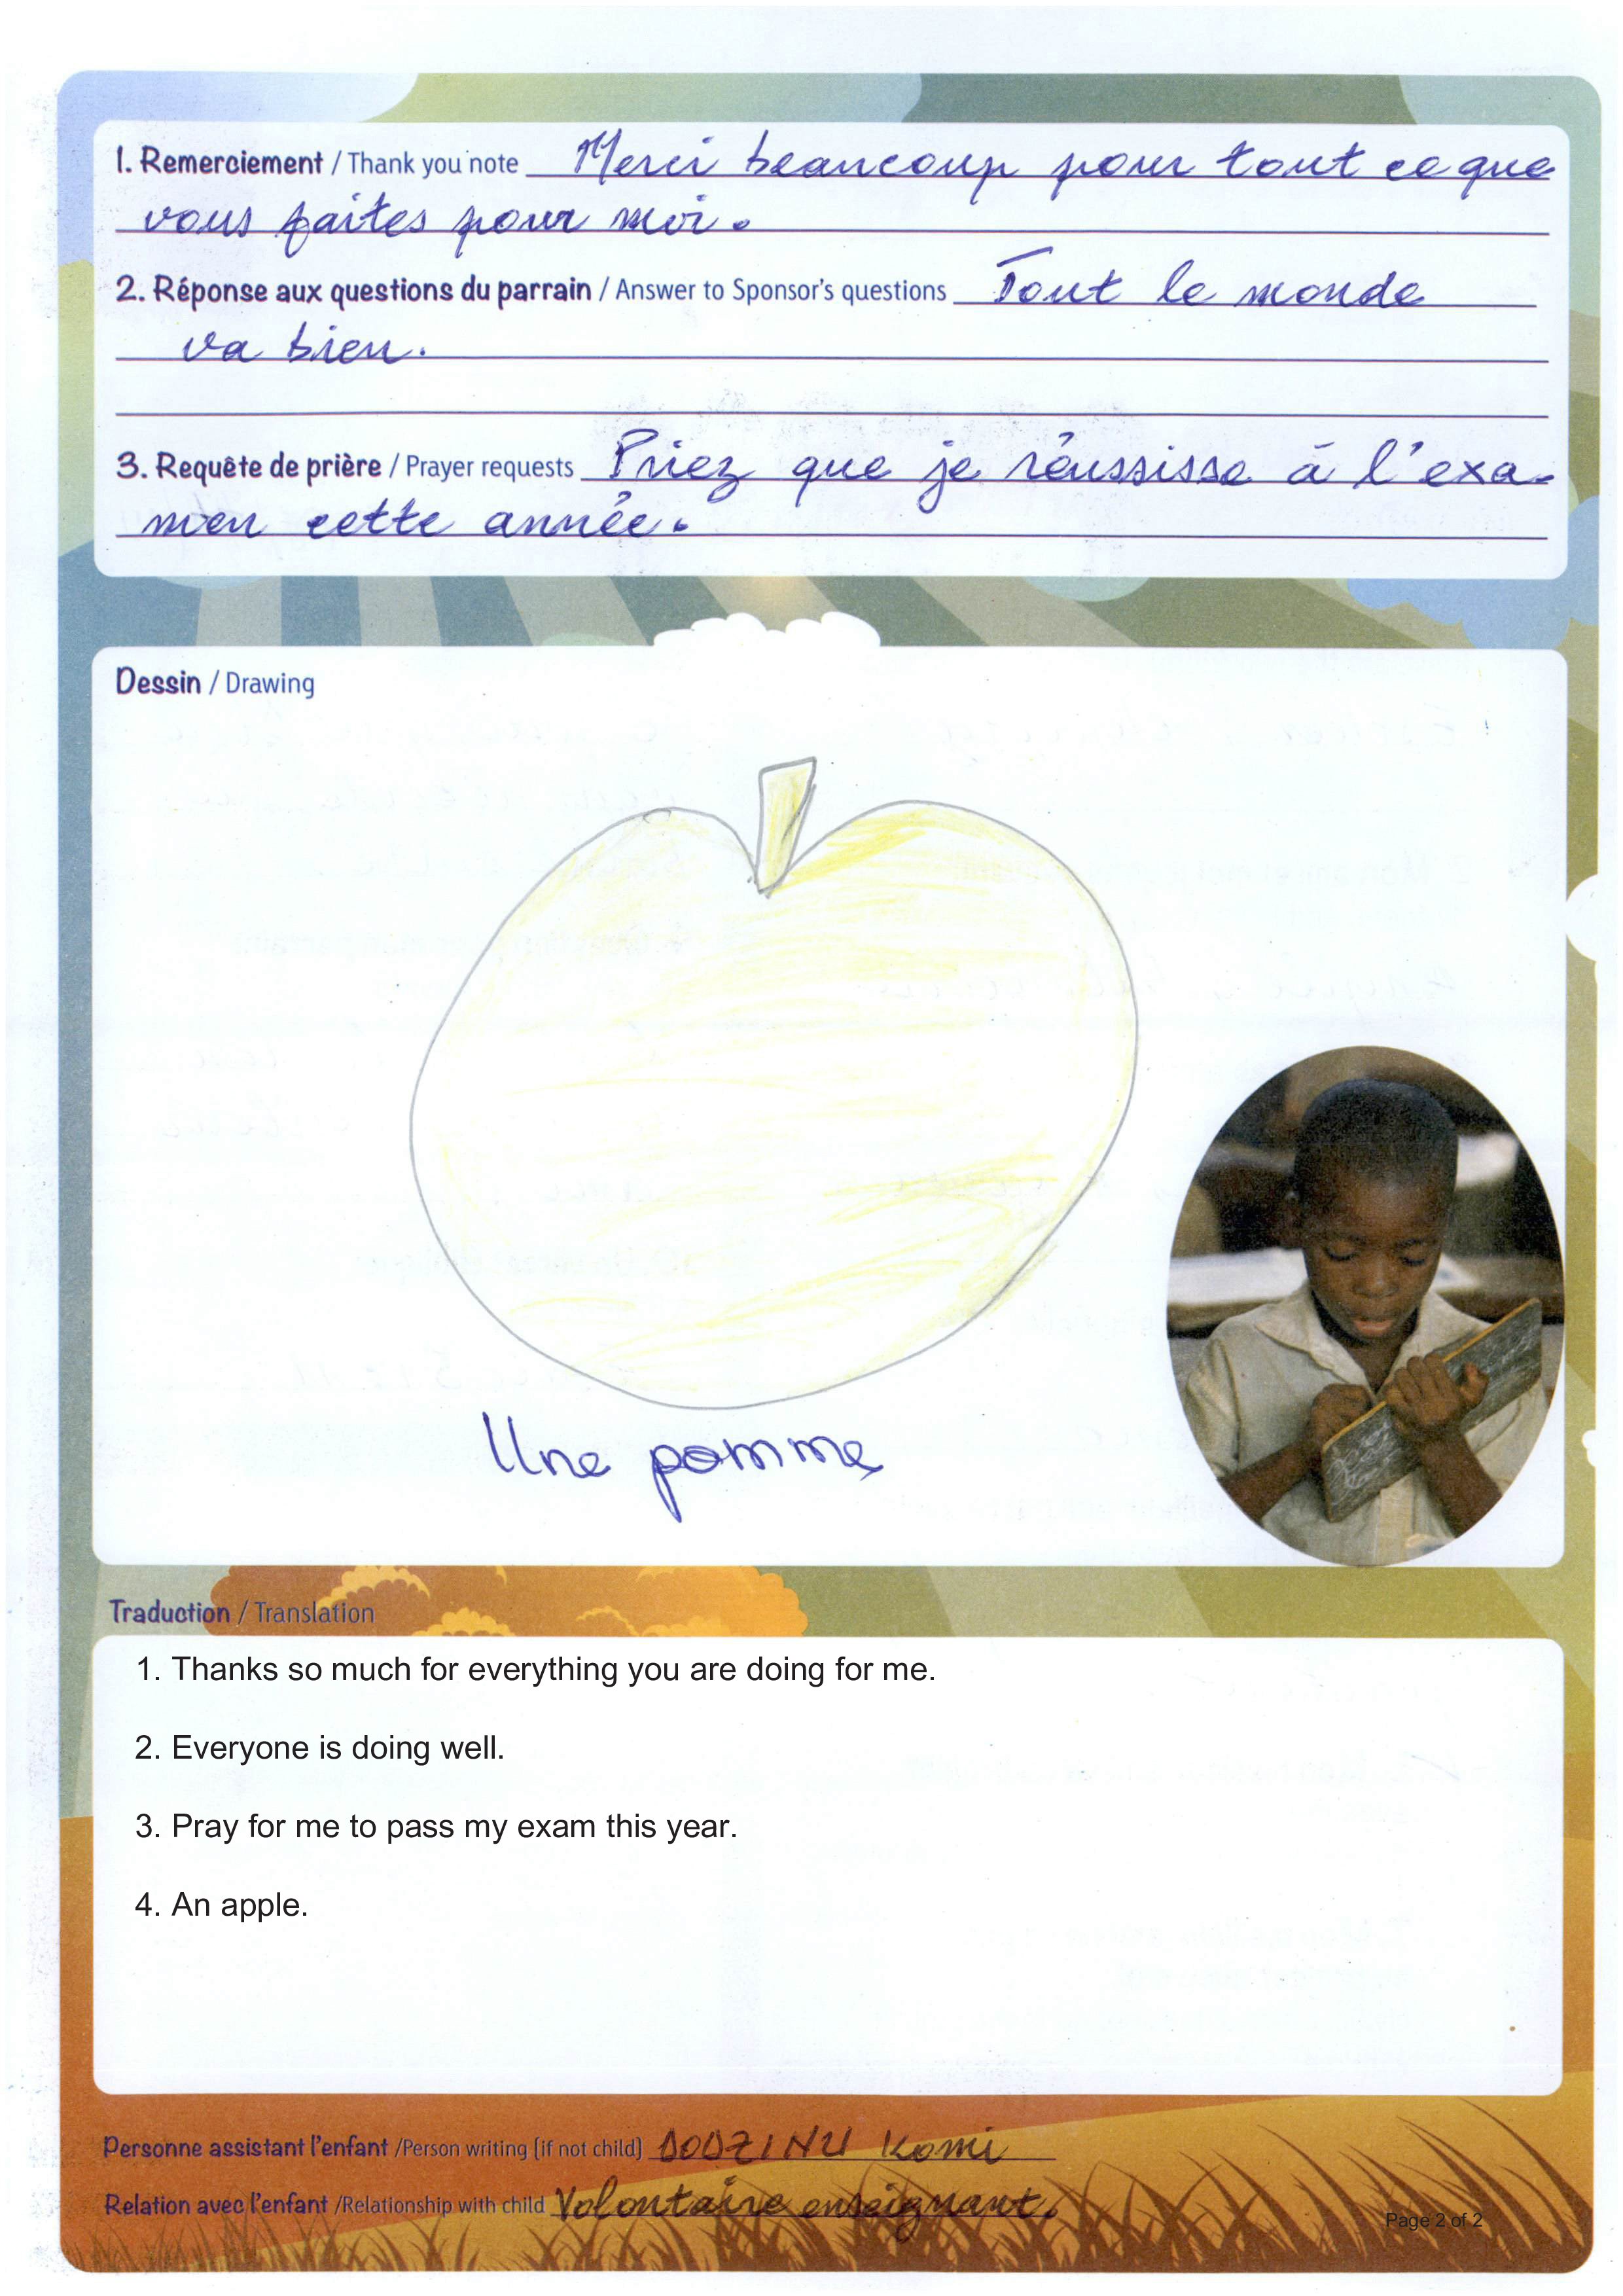 1. Remerciement / Thank you note Merci beaucoup pour tout ce que
vous faites pour moi.
2. Réponse aux questions du parrain / Answer to Sponsor's questions Tout le monde
va bien.
3. Requête de prière / Prayer requests Priez que je réussisse à l'exa-
men cette année.
Dessin / Drawing
Une pomme
Traduction / Translation
1. Thanks so much for everything you are doing for me.
2. Everyone is doing well.
3. Pray for me to pass my exam this year.
4. An apple.
Personne assistant l'enfant /Person writing (if not child) DODZINU Komi
Relation avec l'enfant /Relationship with child Volontaire enseignant.
Page 2 of 2